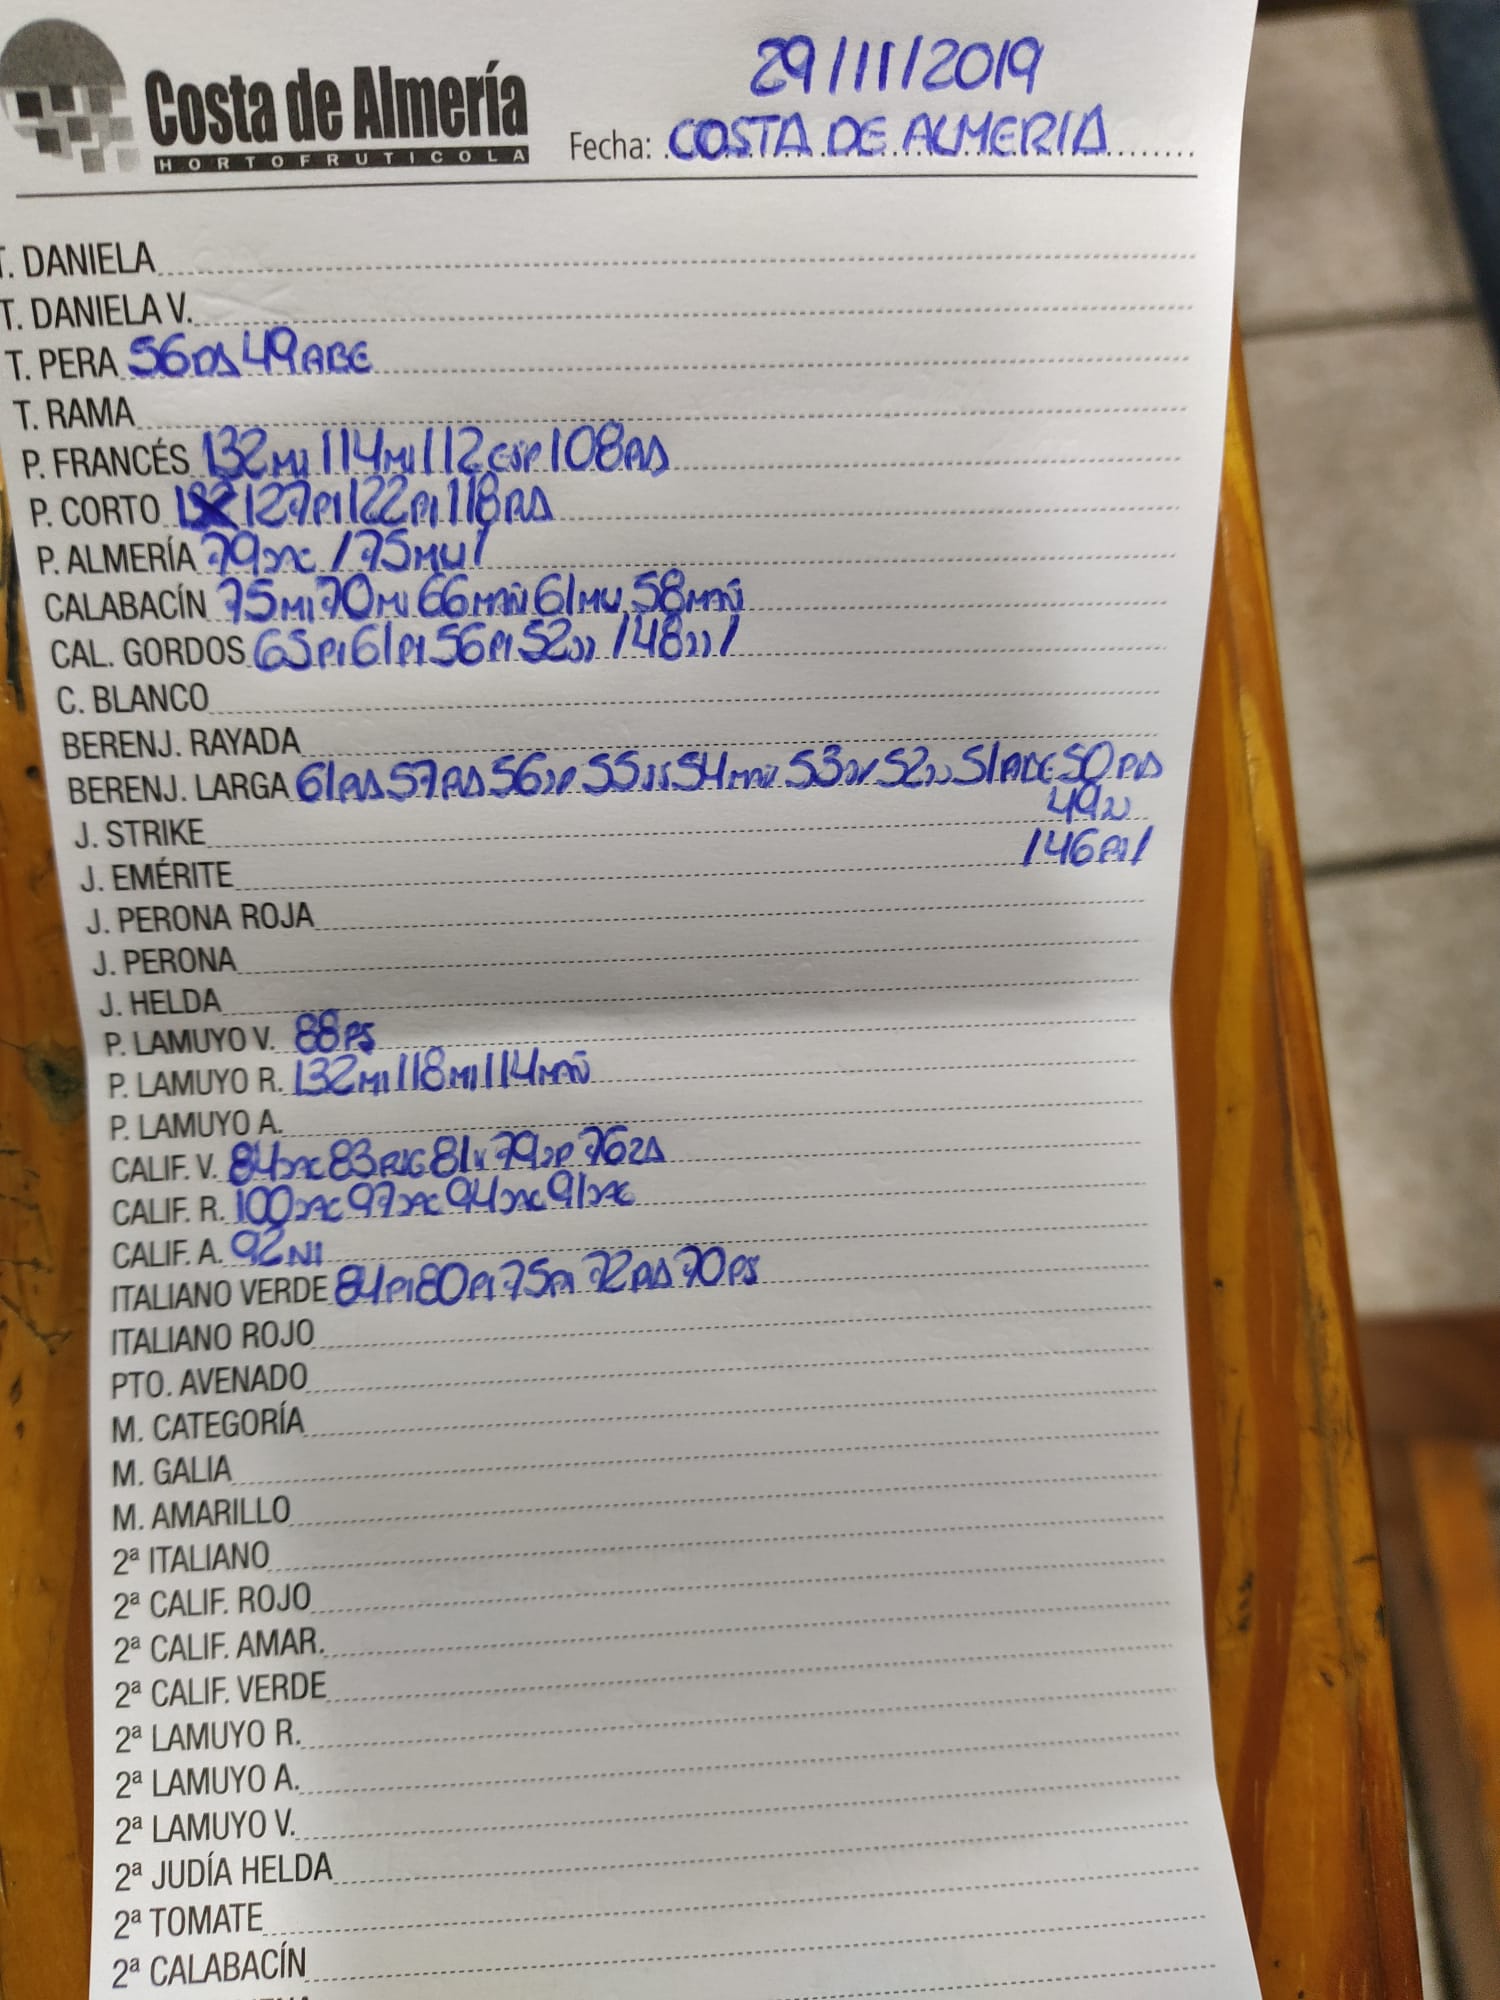 Costa de Almería
HORTOFRUTICOLA
29/11/2019
Fecha: COSTA DE ALMERIA
T. DANIELA
T. DANIELA V.
T. PERA 56 DA 49 ABE
T. RAMA
P. FRANCÉS 132 MI 114 MI 112 ESP 108 PAD
P. CORTO 127 PI 122 PI 118 PAD
P. ALMERÍA 79 /75 MU/
CALABACÍN 75 MI 70 MI 66 MAÑ 61 MU 58 MAÑ
CAL. GORDOS 65 PI 61 PI 56 PI 52 JJ /48 JJ/
C. BLANCO
BERENJ. RAYADA
BERENJ. LARGA 61 PAD 57 PAD 56 55 54 MAÑ 53 52 JJ 51 ABE 50 PAD
49
J. STRIKE
/46 PI/
J. EMÉRITE
J. PERONA ROJA
J. PERONA
J. HELDA
P. LAMUYO V. 88 PS
P. LAMUYO R. 132 MI 118 MI 114 MAÑ
P. LAMUYO A.
CALIF. V. 84 83 81 79 76
CALIF. R. 100 97 94 91
CALIF. A. 92 NI
ITALIANO VERDE 84 PI 80 PI 75 PI 72 PAD 70 PS
ITALIANO ROJO
PTO. AVENADO
M. CATEGORÍA
M. GALIA
M. AMARILLO
2ª ITALIANO
2ª CALIF. ROJO
2ª CALIF. AMAR.
2ª CALIF. VERDE
2ª LAMUYO R.
2ª LAMUYO A.
2ª LAMUYO V.
2ª JUDÍA HELDA
2ª TOMATE
2ª CALABACÍN